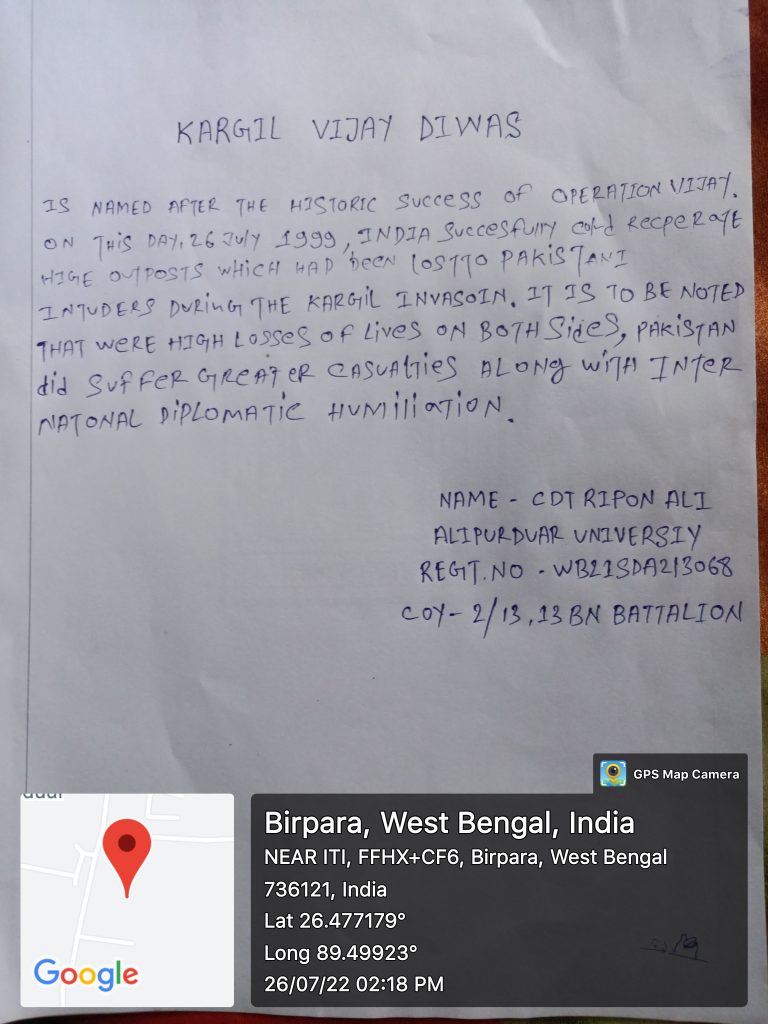 KARGIL VIJAY DIWAS
IS NAMED AFTER THE HISTORIC SUCCESS OF OPERATION VIJAY.
ON THIS DAY, 26 JULY 1999, INDIA SUCCESFULLY COULD RECPERATE
HIGE OUTPOSTS WHICH HAD BEEN LOSTTO PAKISTANI
INTUDERS DURING THE KARGIL INVASOIN. IT IS TO BE NOTED
THAT WERE HIGH LOSSES OF LIVES ON BOTH SIDES, PAKISTAN
did SUFFER GREATER CASUALTIES ALONG WITH INTER
NATONAL DIPLOMATIC HUMILIATION.
NAME - CDT RIPON ALI
ALIPURDUAR UNIVERSIY
REGT.NO - WB21SDA213068
COY- 2/13, 13 BN BATTALION
GPS Map Camera
Birpara, West Bengal, India
NEAR ITI, FFHX+CF6, Birpara, West Bengal
736121, India
Lat 26.477179°
Long 89.49923°
26/07/22 02:18 PM
Google